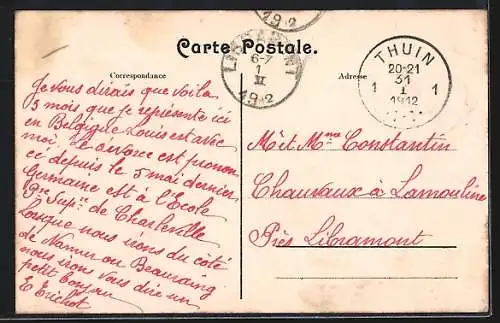 Carte Postale.
Correspondance
Adresse
Je vous dirais que voila
3 mois que je représente ici
en Belgique Louis est avec
moi, le divorce est pronon
cé depuis le 5 mai dernier,
Germaine est à l'Ecole
Pre Supre de Charleville
Lorsque nous irons du côté
de Namur ou Beauraing
nous irons vous dire un
petit bonjour
E Erichot
Mr et Mme Constantin
Chauvaux à Lamouline
Près Libramont
1912
LIBRAMONT
6-7
1
II
1912
THUIN
20-21
31
1 I 1
1912